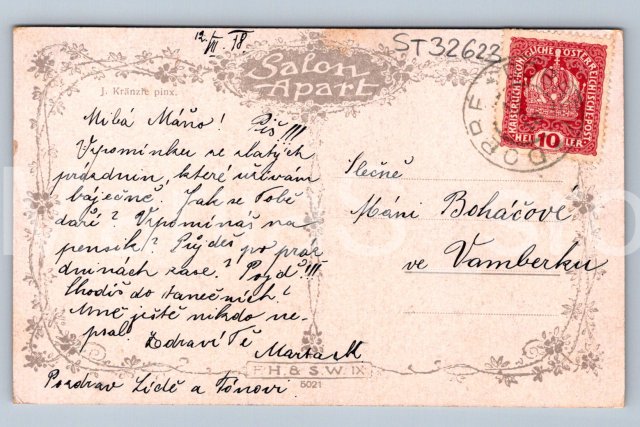 12./VII. 18.
ST32623
Salon
Apart
J. Kränzle pinx.
KAISERLICHE KÖNIGLICHE ÖSTERREICHISCHE POST
HELLER 10
DORRE
Milá Máňo! Piš!!!
Vzpomínku ze zlatých
prázdnin, které užívám
báječně. Jak se Tobě
daří? Vzpomínáš na
pensik? Půjdeš po práz
dninách zase? Pojď!!!
Chodíš do tanečních?
Mně ještě nikdo ne-
psal. Zdraví Tě
Marta K.
Pozdrav Lidě a Tónovi.
Slečně
Máni Boháčové
ve Vamberku
F.H. & S.W. IX
5021